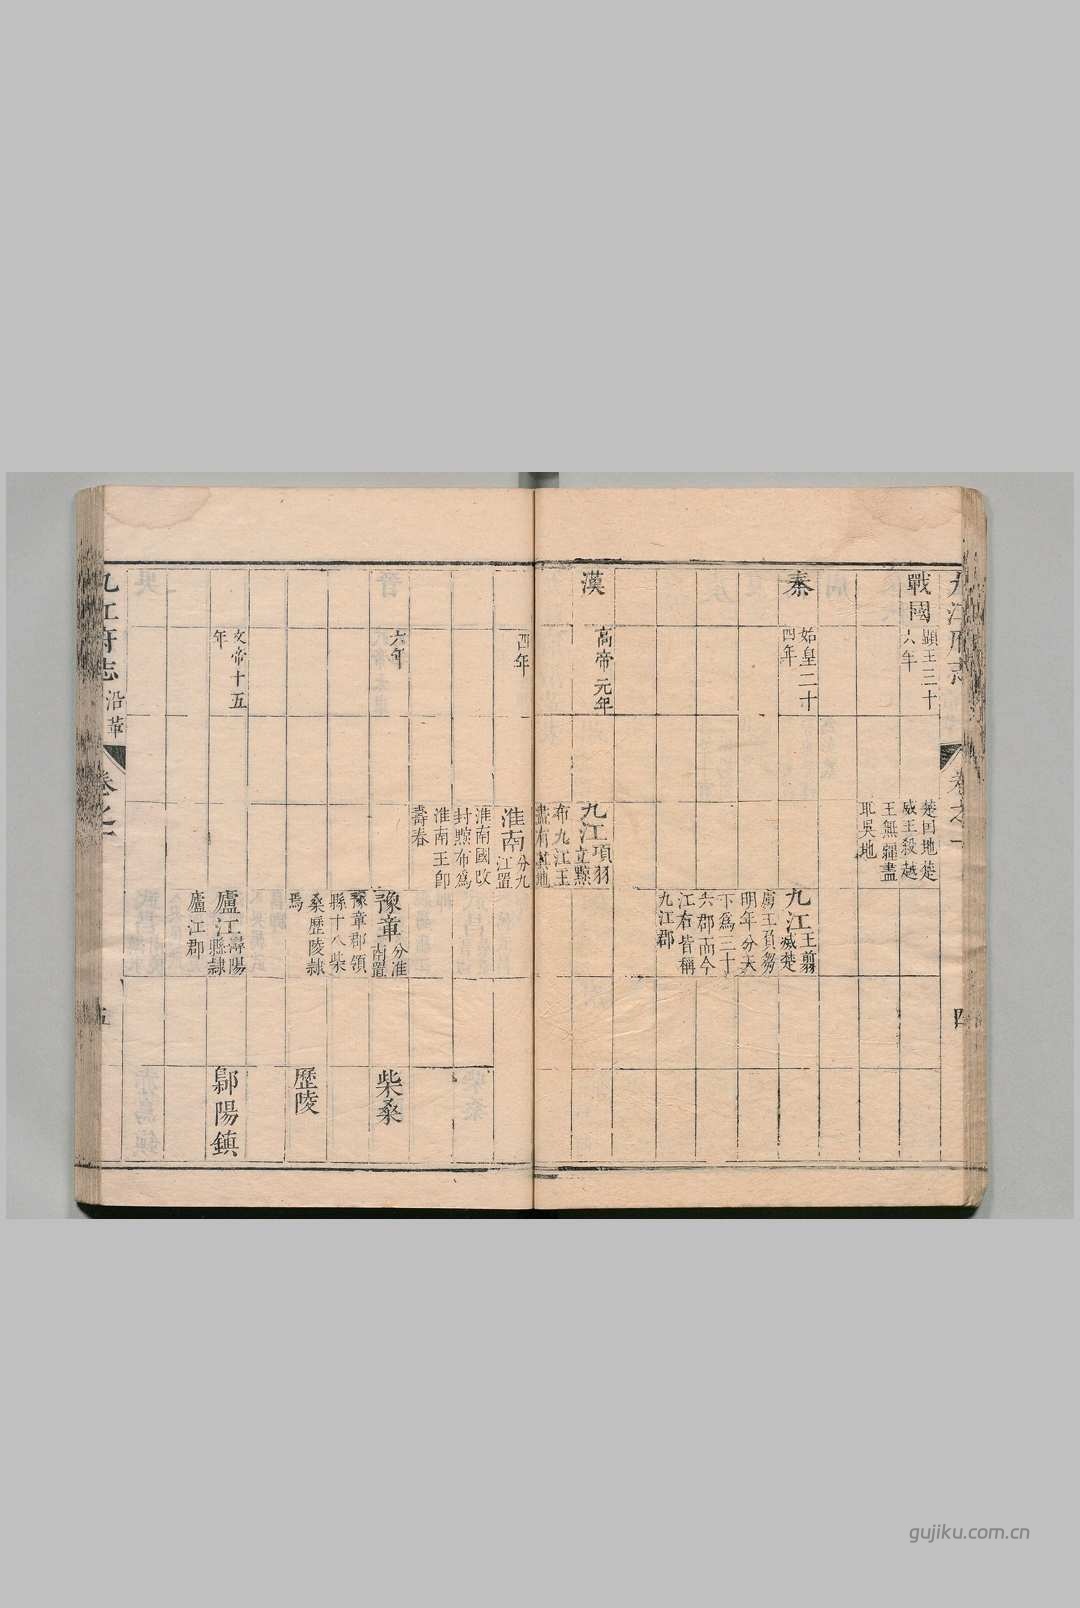 九江府志
卷之一
四
戰國
顯王三十
六年
楚回地楚
威王殺越
王無疆盡
取吳地
秦
始皇二十
四年
九江王翦
滅楚
虜王負芻
明年分天
下為三十
六郡而今
江右皆稱
九江郡
漢
高帝元年
九江項羽
立黥
布九江王
盡有其地
四年
淮南分九
江置
淮南國改
封黥布為
淮南王即
壽春
六年
豫章分淮
南置
豫章郡領
縣十八柴
桑歷陵隸
焉
柴桑
歷陵
文帝十五
年
廬江潯陽
縣隸
廬江郡
鄡陽鎮
九江府志
沿革
卷之一
五
gujiku.com.cn